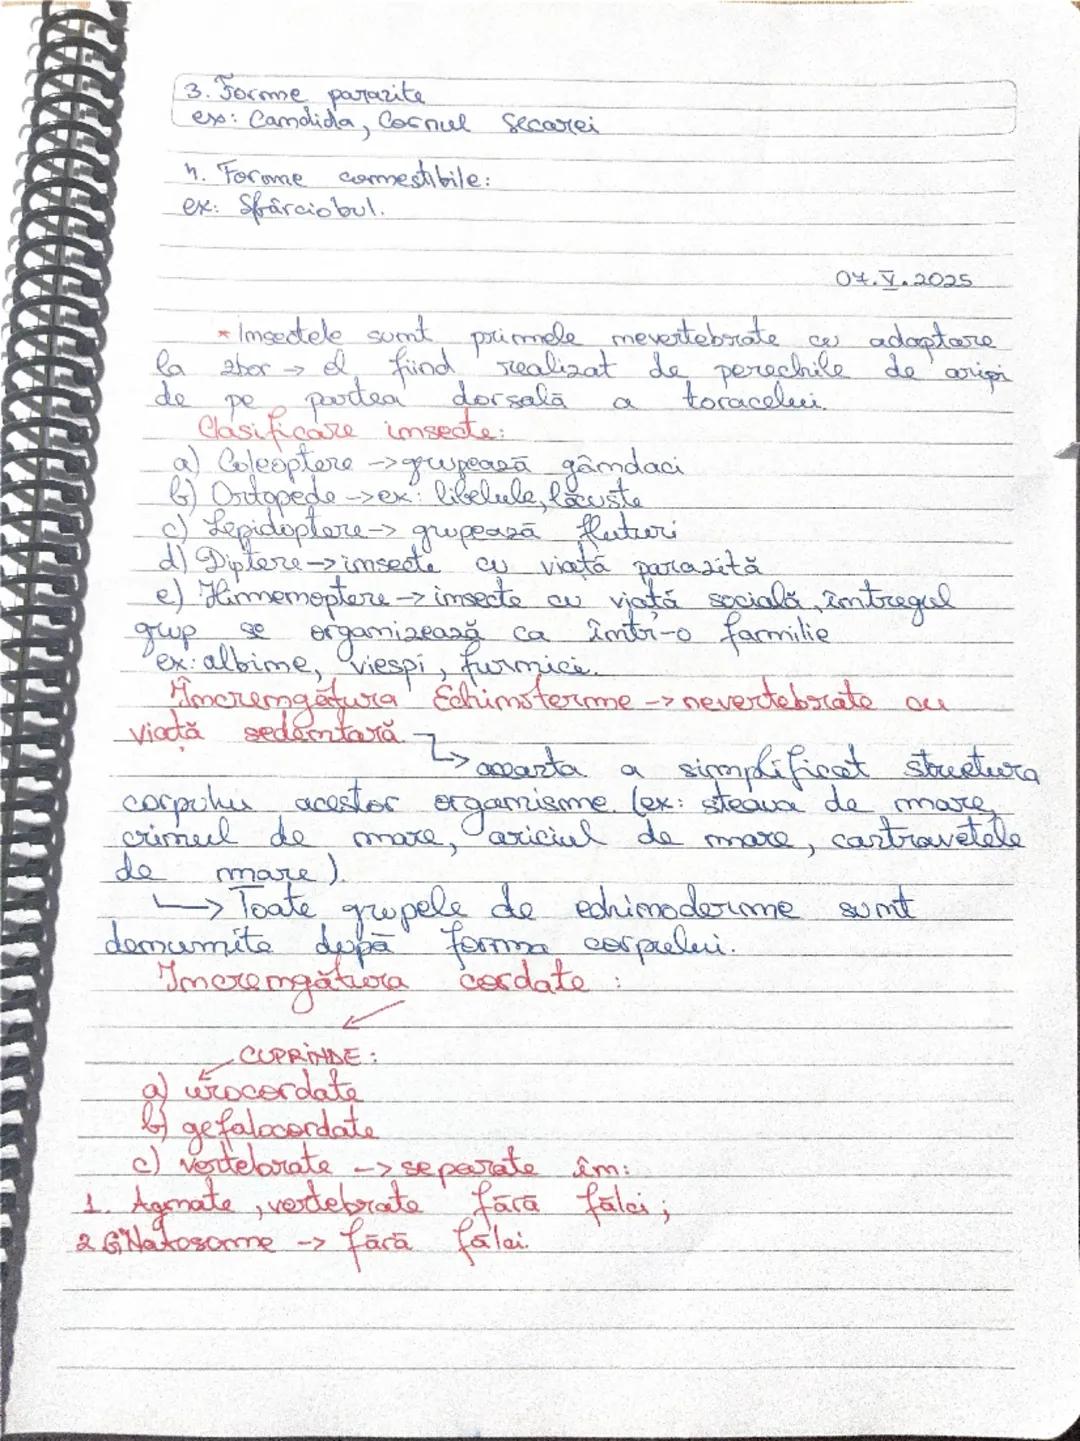 3. Forme parazite
ex: Candida, Cornul Secarei
4. Forme comestibile:
ex: Sbârciobul.
07.V.2025
* Insectele sunt primele nevertebrate cu adaptare
la zbor → el fiind realizat de perechile de aripi
de pe partea dorsală a toracelui.
Clasificare insecte:
a) Coleoptere -> grupează gândaci
b) Ortopede -> ex: libelule, lăcuste
c) Lepidoptere -> grupează fluturi
d) Diptere -> insecte cu viață parazită
e) Himemoptere -> insecte cu viață socială, întregul
grup se organizează ca într-o familie
ex: albine, viespi, furnici.
Încrengătura Echinoterme -> nevertebrate cu
viață sedentară
↳ aceasta a simplificat structura
corpului acestor organisme (ex: steaua de mare,
crinul de mare, ariciul de mare, castravetele
de mare).
↳ Toate grupele de echinoderme sunt
denumite după forma corpului.
Încrengătura cordate:
CUPRINDE:
a) urocordate
b) gefalocordate
c) vertebrate -> separate în:
1. Agnate, vertebrate fără fălci;
2. GNatosome -> fără fălci.